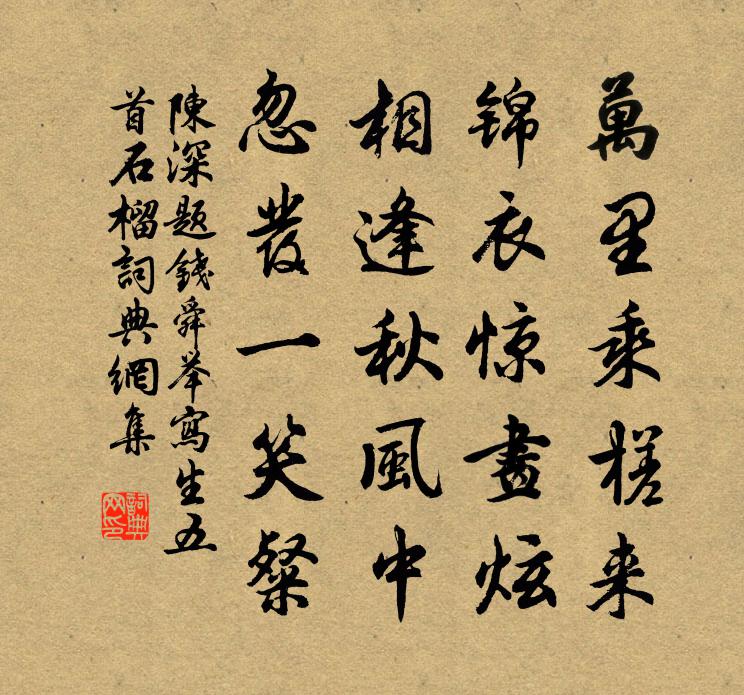 萬里乘槎来
锦衣惊畫炫
相逢秋風中
忽發一笑粲
陳深题錢舜举寫生五
首石榴詞典網集
詞典網印